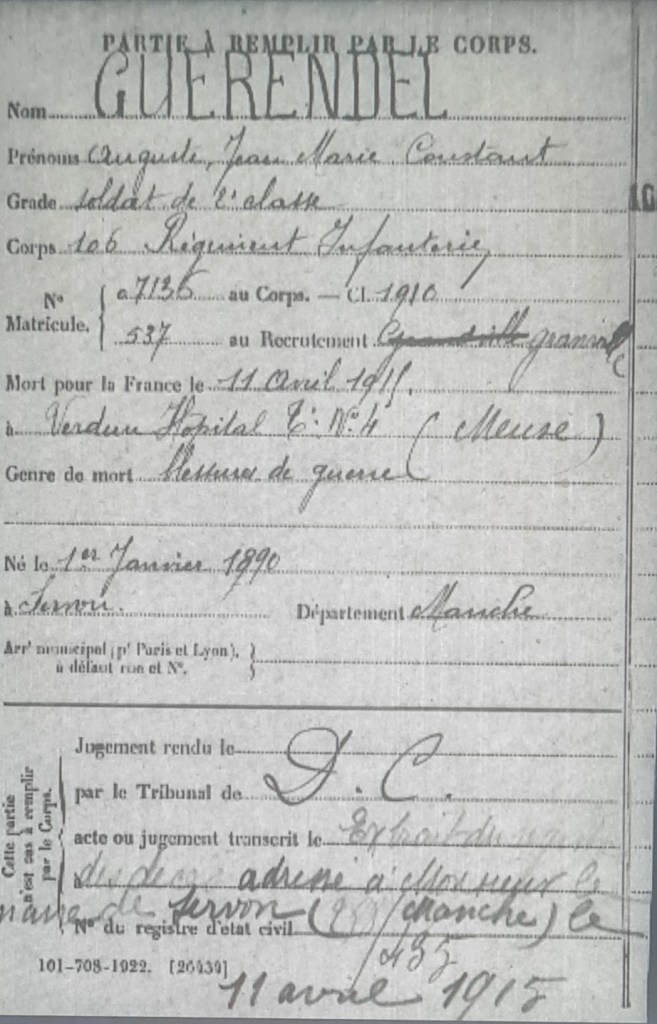 PARTIE À REMPLIR PAR LE CORPS.
Nom GUERENDEL
Prénoms Auguste, Jean Marie Constant
Grade soldat de 2e classe
Corps 106 Régiment Infanterie
N° Matricule. { a7136 au Corps. — Cl. 1910
537 au Recrutement Granville granville
Mort pour la France le 11 Avril 1915.
à Verdun Hopital T. N° 4 (Meuse)
Genre de mort blessures de guerre
Né le 1er Janvier 1890
à Servon. Département Manche
Arrt municipal (pr Paris et Lyon), }
à défaut rue et N°.
Cette partie n'est pas à remplir par le Corps.
Jugement rendu le
par le Tribunal de D. C.
acte ou jugement transcrit le Extrait du
des décès adressé à Monsieur le
maire de Servon (Manche) le
N° du registre d'état civil
435
101-708-1922. [26434]
11 avril 1915